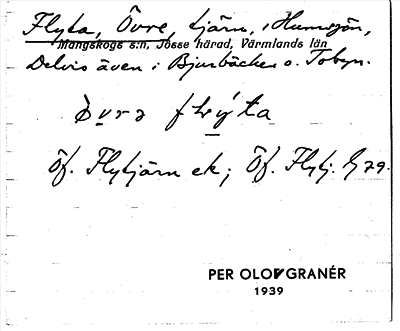 Flyta, Övre, tjärn, i Humsjön,
Mangskogs s:n, Jösse härad, Värmlands län
Delvis även i Bjurbäcken o. Tobyn.
Öf. Flytjärn ek; Öf. Flytj. 79.
PER OLOV GRANÉR
1939